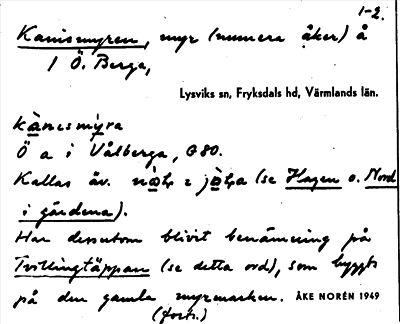 1-2.
Kanismyren, myr (numera åker) å
1 Ö. Berga,
Lysviks sn, Fryksdals hd, Värmlands län.
Ö a i Vålberga, G80.
Kallas äv. (se Hagen o. Nord
i gårdena).
Har dessutom blivit benämning på
Tvillingtäppan (se detta ord), som byggts
på den gamla myrmarken. ÅKE NORÉN 1949
(forts.)